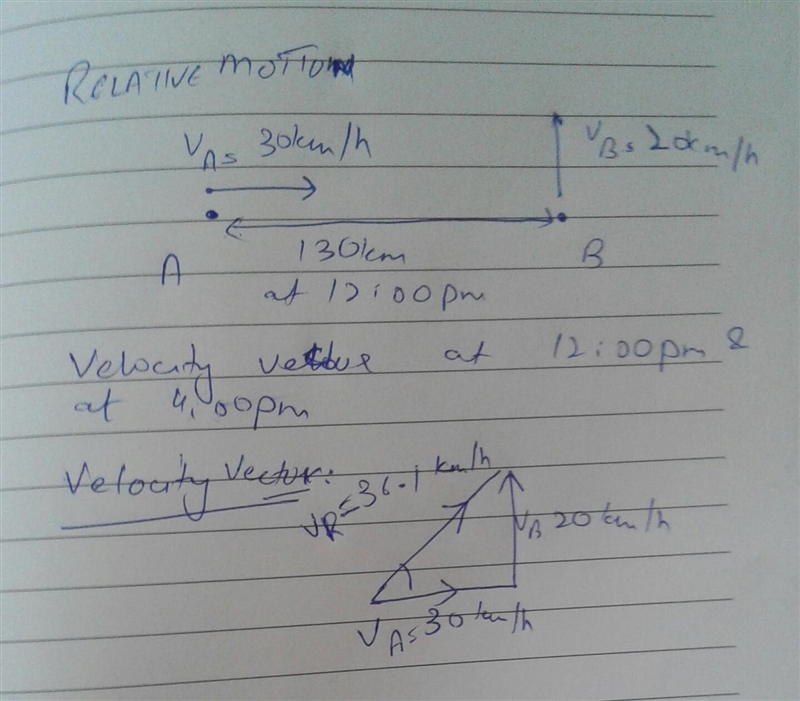 RELATIVE MOTION
VA= 30km/h
VB= 20km/h
A
130km
B
at 12:00pm
Velocity at 12:00pm &
at 4:00pm
Velocity Vector:
VR=36.1 km/h
VB 20 km/h
VA=30 km/h